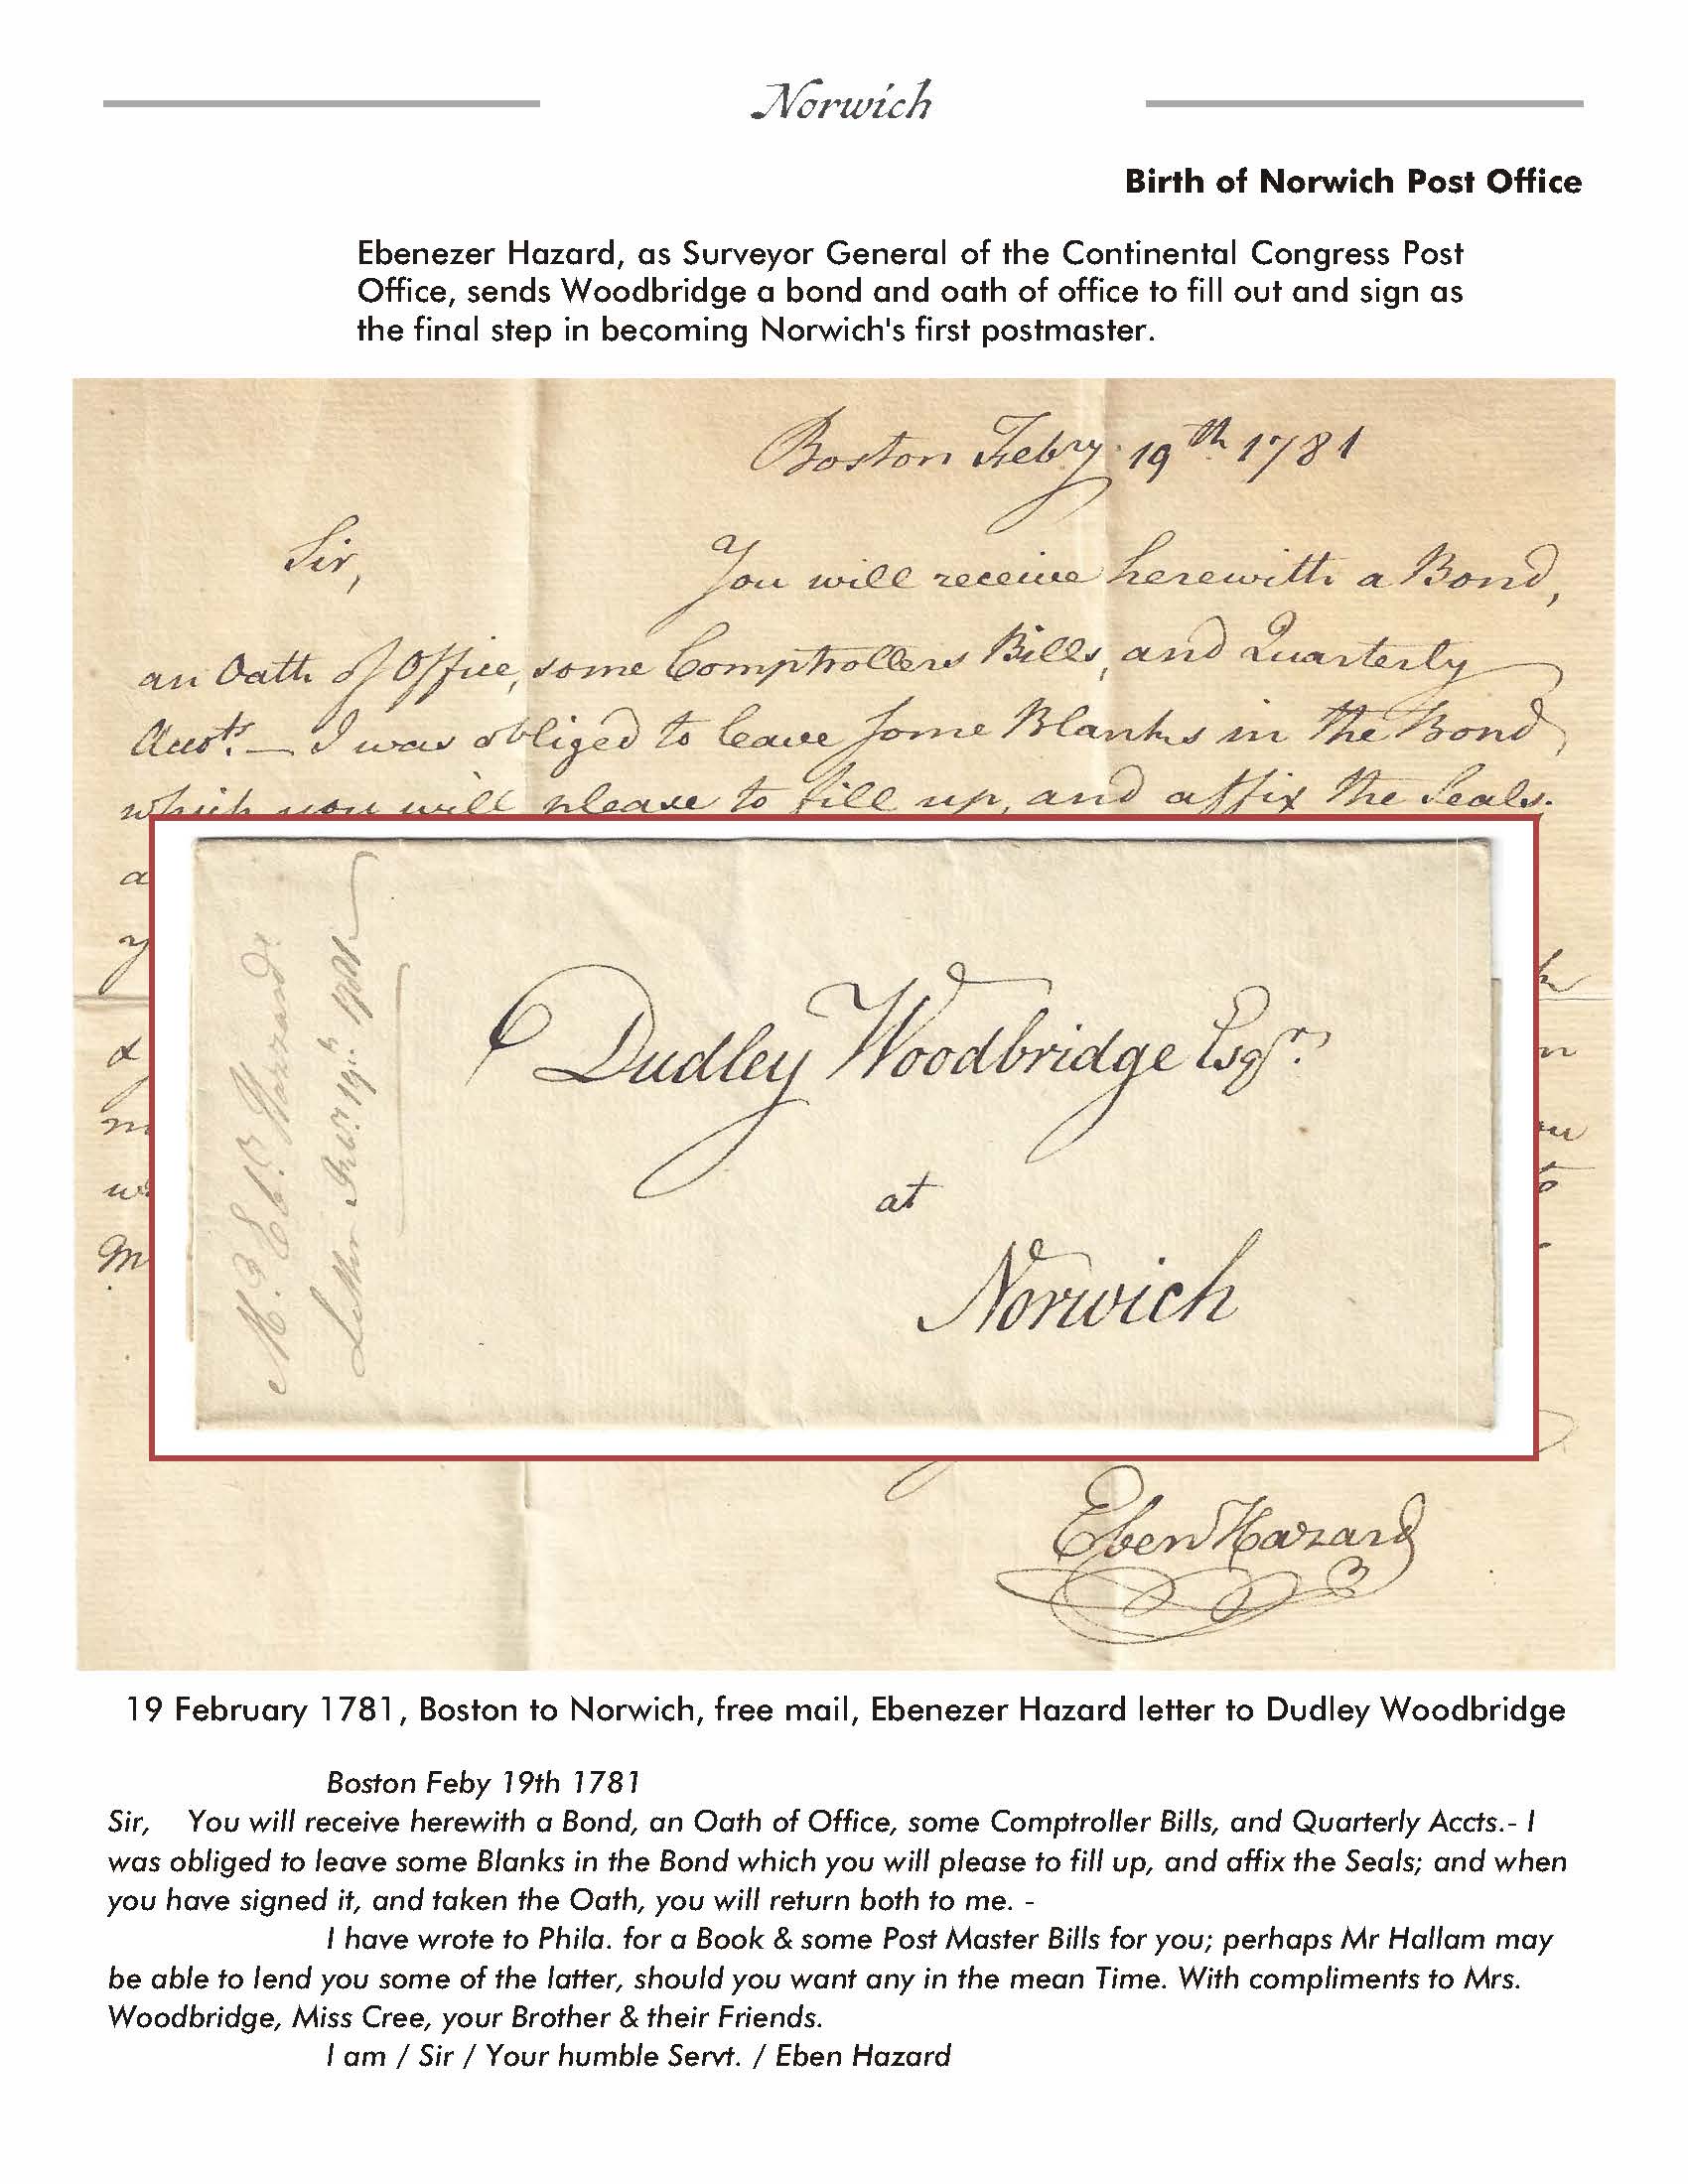 Norwich
Birth of Norwich Post Office
Ebenezer Hazard, as Surveyor General of the Continental Congress Post
Office, sends Woodbridge a bond and oath of office to fill out and sign as
the final step in becoming Norwich's first postmaster.
Boston Feby. 19th. 1781
Sir,
You will receive herewith a Bond,
an Oath of Office, some Comptrollers Bills, and Quarterly
Accots. — I was obliged to leave some Blanks in the Bond
which you will please to fill up, and affix the Seals.
Dudley Woodbridge Esqr.
at
Norwich
Mr. Ebr. Hazzard
Letter Febr. 19th. 1781
Eben Hazard
19 February 1781, Boston to Norwich, free mail, Ebenezer Hazard letter to Dudley Woodbridge
Boston Feby 19th 1781
Sir, You will receive herewith a Bond, an Oath of Office, some Comptroller Bills, and Quarterly Accts.- I
was obliged to leave some Blanks in the Bond which you will please to fill up, and affix the Seals; and when
you have signed it, and taken the Oath, you will return both to me. -
I have wrote to Phila. for a Book & some Post Master Bills for you; perhaps Mr Hallam may
be able to lend you some of the latter, should you want any in the mean Time. With compliments to Mrs.
Woodbridge, Miss Cree, your Brother & their Friends.
I am / Sir / Your humble Servt. / Eben Hazard